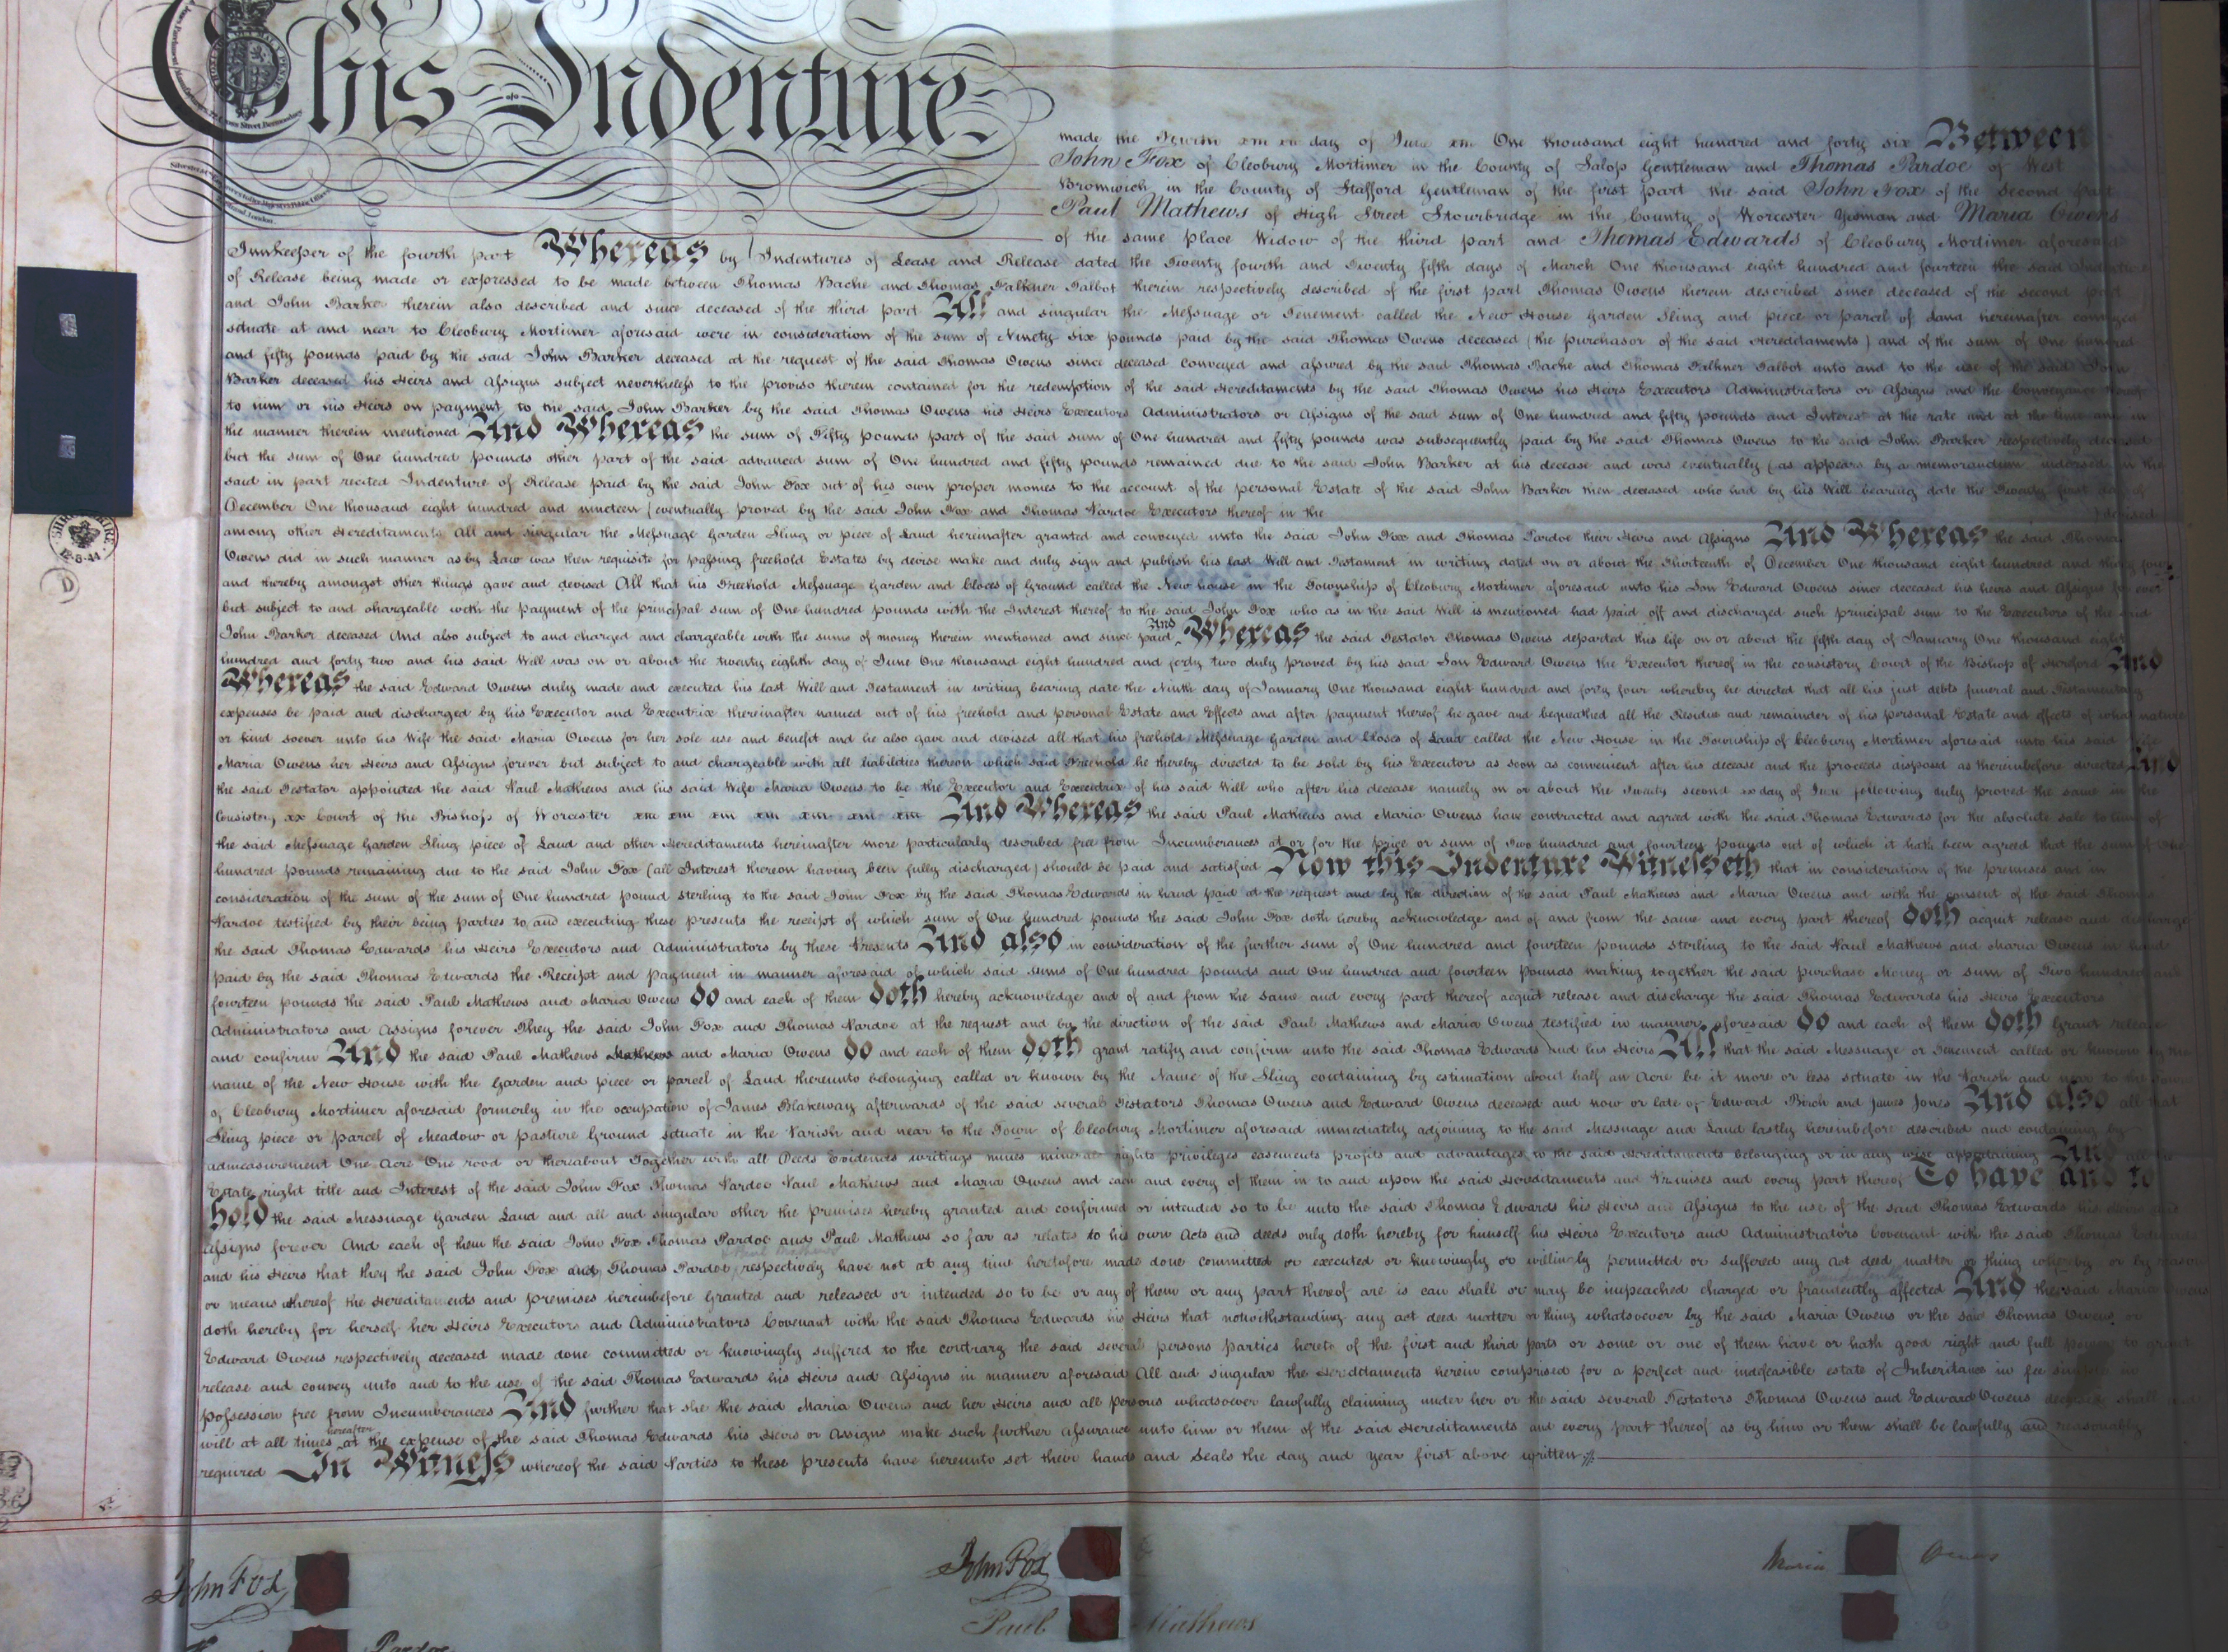 This Indenture
made the day of June One thousand eight hundred and forty six Between
John Fox of Cleobury Mortimer in the County of Salop Gentleman and Thomas Pardoe of West
Bromwich in the County of Stafford Gentleman of the first part the said John Fox of the Second part
Paul Mathews of High Street Stourbridge in the County of Worcester Yeoman and Maria Owens
of the same place Widow of the third part and Thomas Edwards of Cleobury Mortimer aforesaid
Innkeeper of the fourth part Whereas by Indentures of Lease and Release dated the Twenty fourth and Twenty fifth days of March One thousand eight hundred and fourteen the said Indenture
of Release being made or expressed to be made between Thomas Bache and Thomas Falkner Talbot therein respectively described of the first part Thomas Owens therein described since deceased of the second part
and John Barker therein also described and since deceased of the third part All and singular the Messuage or Tenement called the New House Garden Sling and piece or parcel of Land hereinafter conveyed
situate at and near to Cleobury Mortimer aforesaid were in consideration of the sum of Ninety six pounds paid by the said Thomas Owens deceased (the purchasor of the said Hereditaments) and of the sum of One hundred
and fifty pounds paid by the said John Barker deceased at the request of the said Thomas Owens since deceased conveyed and assured by the said Thomas Bache and Thomas Falkner Talbot unto and to the use of the said John
Barker deceased his Heirs and Assigns subject nevertheless to the proviso therein contained for the redemption of the said Hereditaments by the said Thomas Owens his Heirs Executors Administrators or Assigns and the Conveyance thereof
to him or his Heirs on payment to the said John Barker by the said Thomas Owens his Heirs Executors Administrators or Assigns of the said sum of One hundred and fifty pounds and Interest at the rate and at the time and in
the manner therein mentioned And Whereas the sum of Fifty pounds part of the said sum of One hundred and fifty pounds was subsequently paid by the said Thomas Owens to the said John Barker respectively deceased
but the sum of One hundred pounds other part of the said advanced sum of One hundred and fifty pounds remained due to the said John Barker at his decease and was eventually (as appears by a memorandum indorsed on the
said in part recited Indenture of Release paid by the said John Fox out of his own proper monies to the account of the personal Estate of the said John Barker then deceased who had by his Will bearing date the Twenty first day of
December One thousand eight hundred and nineteen (eventually proved by the said John Fox and Thomas Pardoe Executors thereof in the ) devised
among other Hereditaments All and singular the Messuage Garden Sling or piece of Land hereinafter granted and conveyed unto the said John Fox and Thomas Pardoe their Heirs and Assigns And Whereas the said Thomas
Owens did in such manner as by Law was then requisite for passing freehold Estates by devise make and duly sign and publish his last Will and Testament in writing dated on or about the Thirteenth of December One thousand eight hundred and thirty four
and thereby amongst other things gave and devised All that his Freehold Messuage Garden and Closes of Ground called the New house in the Township of Cleobury Mortimer aforesaid unto his Son Edward Owens since deceased his heirs and Assigns for ever
but subject to and chargeable with the payment of the principal sum of One hundred pounds with the Interest thereof to the said John Fox who as in the said Will is mentioned had paid off and discharged such principal sum to the Executors of the said
John Barker deceased And also subject to and charged and chargeable with the sums of money therein mentioned and since paid And Whereas the said Testator Thomas Owens departed this life on or about the fifth day of January One thousand eight
hundred and forty two and his said Will was on or about the twenty eighth day of June One thousand eight hundred and forty two duly proved by his said Son Edward Owens the Executor thereof in the consistory Court of the Bishop of Hereford And
Whereas the said Edward Owens duly made and executed his last Will and Testament in writing bearing date the Ninth day of January One thousand eight hundred and forty four whereby he directed that all his just debts funeral and Testamentary
expenses be paid and discharged by his Executor and Executrix thereinafter named out of his freehold and personal Estate and Effects and after payment thereof he gave and bequeathed all the Residue and remainder of his personal Estate and effects of what nature
or kind soever unto his Wife the said Maria Owens for her sole use and benefit and he also gave and devised all that his freehold Messuage Garden and Closes of Land called the New House in the Township of Cleobury Mortimer aforesaid unto his said Wife
Maria Owens her Heirs and Assigns forever but subject to and chargeable with all liabilities thereon which said Freehold he thereby directed to be sold by his Executors as soon as convenient after his decease and the proceeds disposed as thereinbefore directed And
the said Testator appointed the said Paul Mathews and his said Wife Maria Owens to be the Executor and Executrix of his said Will who after his decease namely on or about the Twenty second day of June following duly proved the same in the
Consistory Court of the Bishop of Worcester And Whereas the said Paul Mathews and Maria Owens have contracted and agreed with the said Thomas Edwards for the absolute sale to him of
the said Messuage Garden Sling piece of Land and other Hereditaments hereinafter more particularly described free from Incumberances at or for the price or sum of Two hundred and fourteen pounds out of which it hath been agreed that the sum of One
hundred pounds remaining due to the said John Fox (all Interest thereon having been fully discharged) should be paid and satisfied Now this Indenture Witnesseth that in consideration of the premises and in
consideration of the sum of the sum of One hundred pound sterling to the said John Fox by the said Thomas Edwards in hand paid at the request and by the direction of the said Paul Mathews and Maria Owens and with the consent of the said Thomas
Pardoe testified by their being parties to and executing these presents the receipt of which sum of One hundred pounds the said John Fox doth hereby acknowledge and of and from the same and every part thereof doth acquit release and discharge
the said Thomas Edwards his Heirs Executors and Administrators by these Presents And also in consideration of the further sum of One hundred and fourteen pounds sterling to the said Paul Mathews and Maria Owens in hand
paid by the said Thomas Edwards the Receipt and payment in manner aforesaid of which said sums of One hundred pounds and One hundred and fourteen pounds making together the said purchase Money or sum of Two hundred and
fourteen pounds the said Paul Mathews and Maria Owens do and each of them doth hereby acknowledge and of and from the same and every part thereof acquit release and discharge the said Thomas Edwards his Heirs Executors
Administrators and Assigns forever They the said John Fox and Thomas Pardoe at the request and by the direction of the said Paul Mathews and Maria Owens testified in manner aforesaid do and each of them doth grant release
and confirm And the said Paul Mathews and Maria Owens do and each of them doth grant ratify and confirm unto the said Thomas Edwards and his Heirs All that the said Messuage or Tenement called or known by the
name of the New House with the Garden and piece or parcel of Land thereunto belonging called or known by the Name of the Sling containing by estimation about half an Acre be it more or less situate in the Parish and near to the Town
of Cleobury Mortimer aforesaid formerly in the occupation of James Blakeway afterwards of the said several Testators Thomas Owens and Edward Owens deceased and now or late of Edward Birch and James Jones And also all that
Sling piece or parcel of Meadow or pasture Ground situate in the Parish and near to the Town of Cleobury Mortimer aforesaid immediately adjoining to the said Messuage and Land lastly hereinbefore described and containing by
admeasurement One Acre One rood or thereabout Together with all Deeds Evidents writings mines minerals rights privileges easements profits and advantages to the said Hereditaments belonging or in any wise appertaining And all the
Estate right title and Interest of the said John Fox Thomas Pardoe Paul Mathews and Maria Owens and each and every of them in to and upon the said Hereditaments and Premises and every part thereof To have and to
hold the said Messuage Garden Land and all and singular other the premises hereby granted and confirmed or intended so to be unto the said Thomas Edwards his Heirs and Assigns to the use of the said Thomas Edwards his Heirs and
Assigns forever And each of them the said John Fox Thomas Pardoe and Paul Mathews so far as relates to his own Acts and deeds only doth hereby for himself his Heirs Executors and Administrators Covenant with the said Thomas Edwards
and his Heirs that they the said John Fox and Thomas Pardoe Paul Mathews respectively have not at any time heretofore made done committed or executed or knowingly or willingly permitted or suffered any act deed matter or thing whereby or by reason
or means whereof the Hereditaments and premises hereinbefore granted and released or intended so to be or any of them or any part thereof are is can shall or may be impeached charged or fraudently affected And the said Maria Owens
doth hereby for herself her Heirs Executors and Administrators Covenant with the said Thomas Edwards his Heirs that notwithstanding any act deed matter or thing whatsoever by the said Maria Owens or the said Thomas Owens or
Edward Owens respectively deceased made done committed or knowingly suffered to the contrary the said several persons parties hereto of the first and third parts or some or one of them have or hath good right and full power to grant
release and convey unto and to the use of the said Thomas Edwards his Heirs and Assigns in manner aforesaid All and singular the Hereditaments herein comprised for a perfect and indefeasible estate of Inheritance in fee simple in
possession free from Incumberances And further that she the said Maria Owens and her Heirs and all persons whatsoever lawfully claiming under her or the said several Testators Thomas Owens and Edward Owens deceased shall and
will at all times hereafter at the expense of the said Thomas Edwards his Heirs or Assigns make such further Assurance unto him or them of the said Hereditaments and every part thereof as by him or them shall be lawfully and reasonably
required In Witness whereof the said Parties to these presents have hereunto set their hands and Seals the day and year first above written
SHROPSHIRE
12-8-44
D
John Fox
John Fox
Maria Owens
Paul Mathews
Pardoe